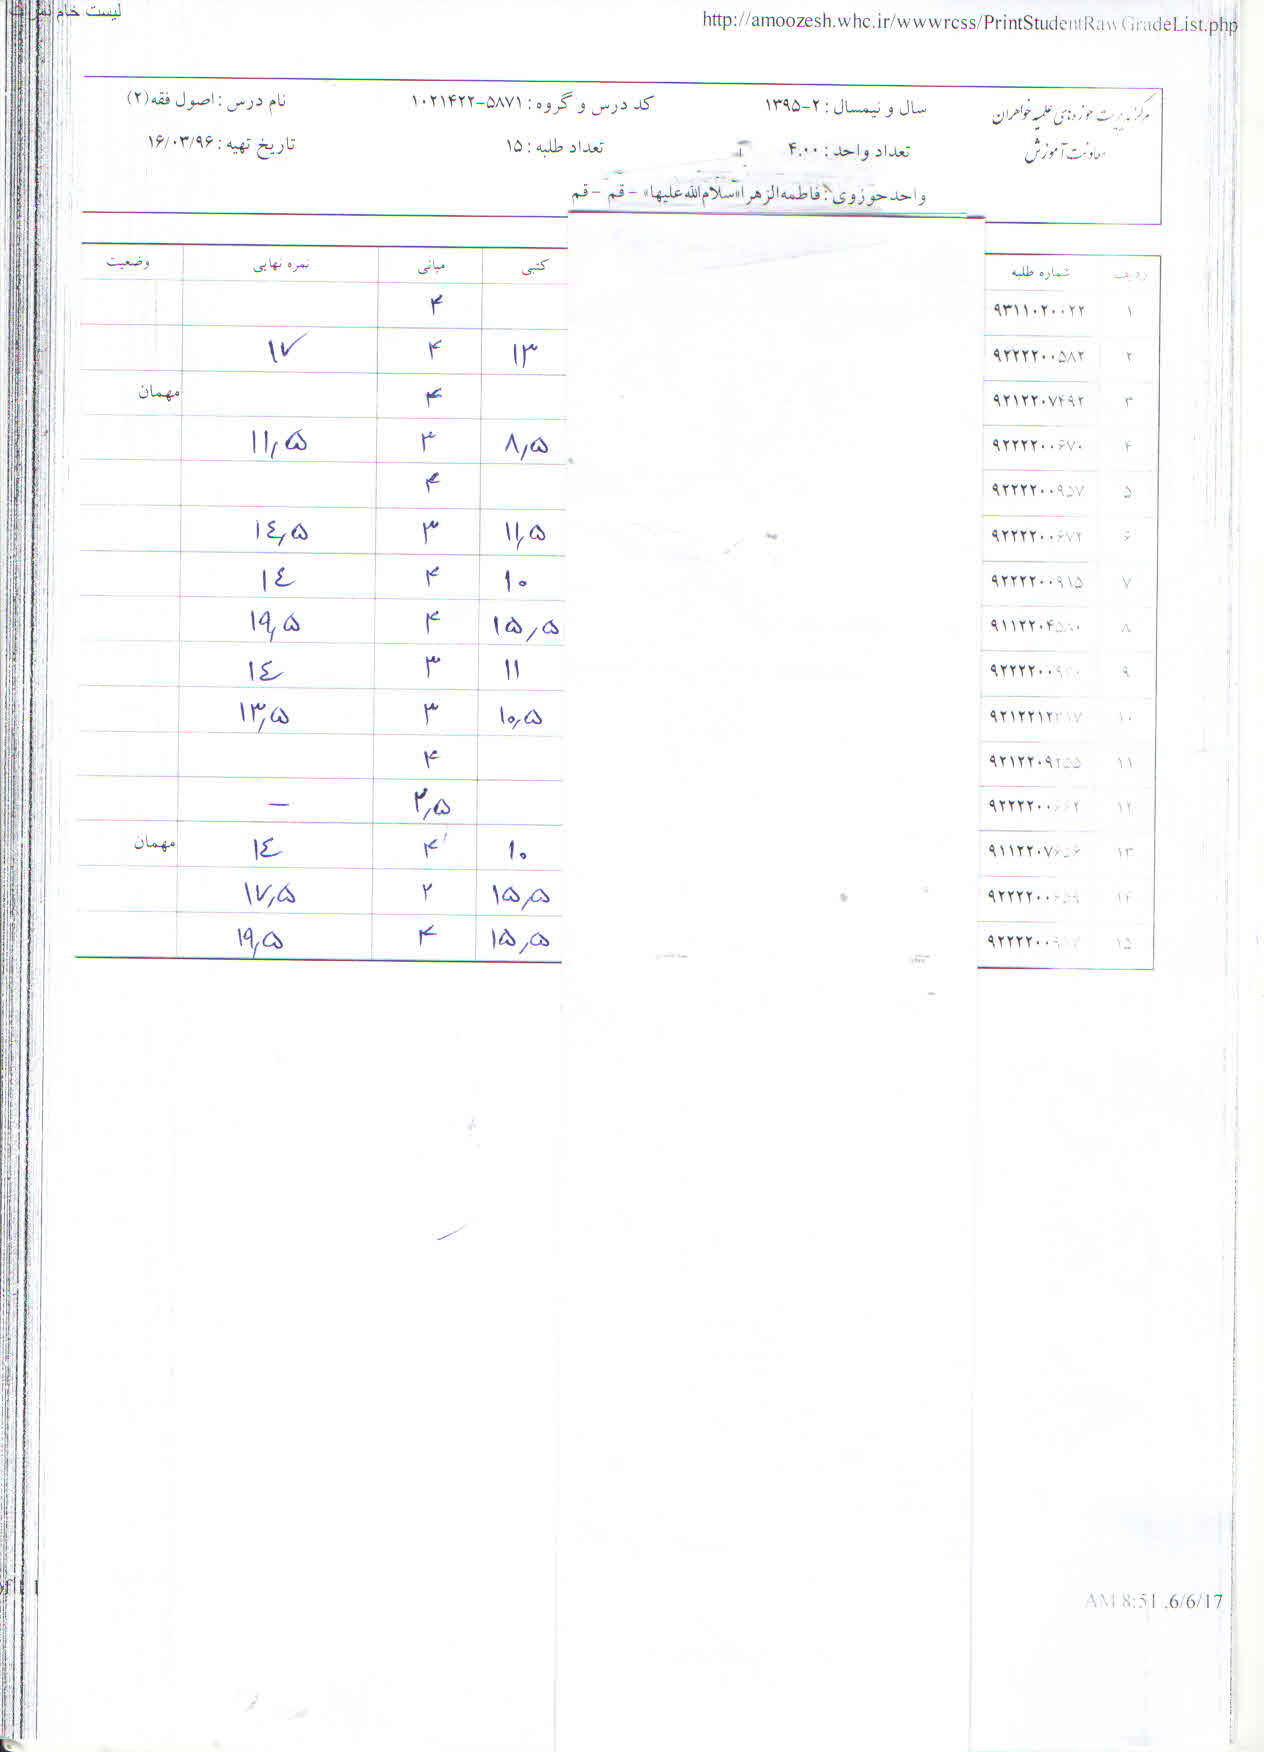 لیست خام نمر
http://amoozesh.whc.ir/wwwrcss/PrintStudentRawGradeList.php
مرکز مدیریت حوزه‌های علمیه خواهران سال و نیمسال : ۲-۱۳۹۵ کد درس و گروه : ۵۸۷۱-۱۰۲۱۴۲۲ نام درس : اصول فقه(۲)
معاونت آموزش تعداد واحد : ۴.۰۰ تعداد طلبه : ۱۵ تاریخ تهیه : ۱۶/۰۳/۹۶
واحد حوزوی : فاطمه الزهرا«سلام الله علیها» - قم - قم
ردیف شماره طلبه کتبی میانی نمره نهایی وضعیت
۱ ۹۳۱۱۰۲۰۰۲۲ ۴
۲ ۹۲۲۲۲۰۰۵۸۲ ۱۳ ۴ ۱۷
۳ ۹۲۱۲۲۰۷۴۹۲ ۴ مهمان
۴ ۹۲۲۲۲۰۰۶۷۰ ۸,۵ ۳ ۱۱,۵
۵ ۹۲۲۲۲۰۰۹۵۷ ۴
۶ ۹۲۲۲۲۰۰۶۷۲ ۱۱,۵ ۳ ۱٤,۵
۷ ۹۲۲۲۲۰۰۹۱۵ ۱۰ ۴ ۱٤
۸ ۹۱۱۲۲۰۴۵۸۰ ۱۵,۵ ۴ ۱۹,۵
۹ ۱۱ ۳ ۱٤
۱۰ ۱۰,۵ ۳ ۱۳,۵
۱۱ ۹۲۱۲۲۰۹۲۵۵ ۴
۱۲ ۹۲۲۲۲۰۰۶۶۲ ۲,۵ –
۱۳ ۹۱۱۲۲۰۷۶۵۶ ۱۰ ۴ ۱٤ مهمان
۱۴ ۹۲۲۲۲۰۰۶۵۹ ۱۵,۵ ۲ ۱۷,۵
۱۵ ۹۲۲۲۲۰۰۹۱۷ ۱۵,۵ ۴ ۱۹,۵
AM 8:51 ,6/6/17